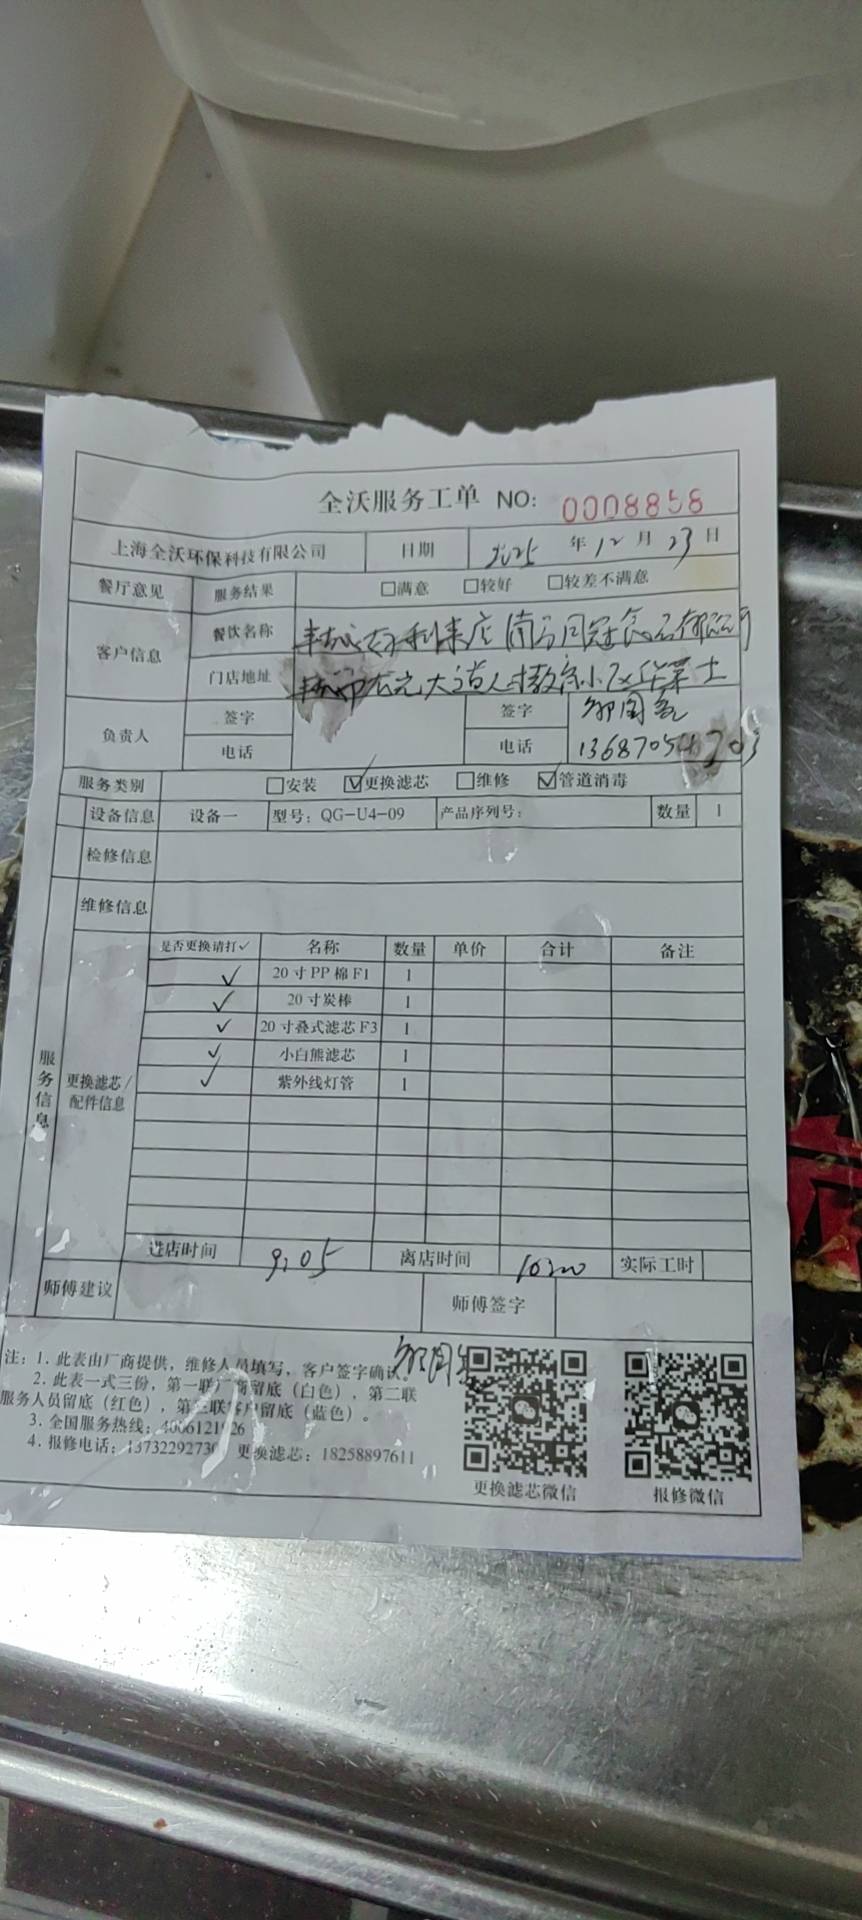 全沃服务工单 NO: 0008858
上海全沃环保科技有限公司 日期 2025 年 12 月 23 日
餐厅意见 服务结果 □满意 □较好 □较差不满意
客户信息 餐饮名称 店
门店地址 大道人 小区华莱士
负责人 签字 签字
电话 电话
服务类别 □安装 ☑更换滤芯 □维修 ☑管道消毒
设备信息 设备一 型号: QG-U4-09 产品序列号: 数量 1
检修信息
维修信息
服务信息
更换滤芯/配件信息
是否更换请打✓ 名称 数量 单价 合计 备注
✓ 20寸PP棉F1 1
✓ 20寸炭棒 1
✓ 20寸叠式滤芯F3 1
✓ 小白熊滤芯 1
✓ 紫外线灯管 1
进店时间 9:05 离店时间 实际工时
师傅建议 师傅签字
注: 1. 此表由厂商提供, 维修人员填写, 客户签字确认。
2. 此表一式三份, 第一联 留底 (白色), 第二联
服务人员留底 (红色), 第三联客户留底 (蓝色)。
3. 全国服务热线:
4. 报修电话: 更换滤芯: 18258897611
更换滤芯微信 报修微信